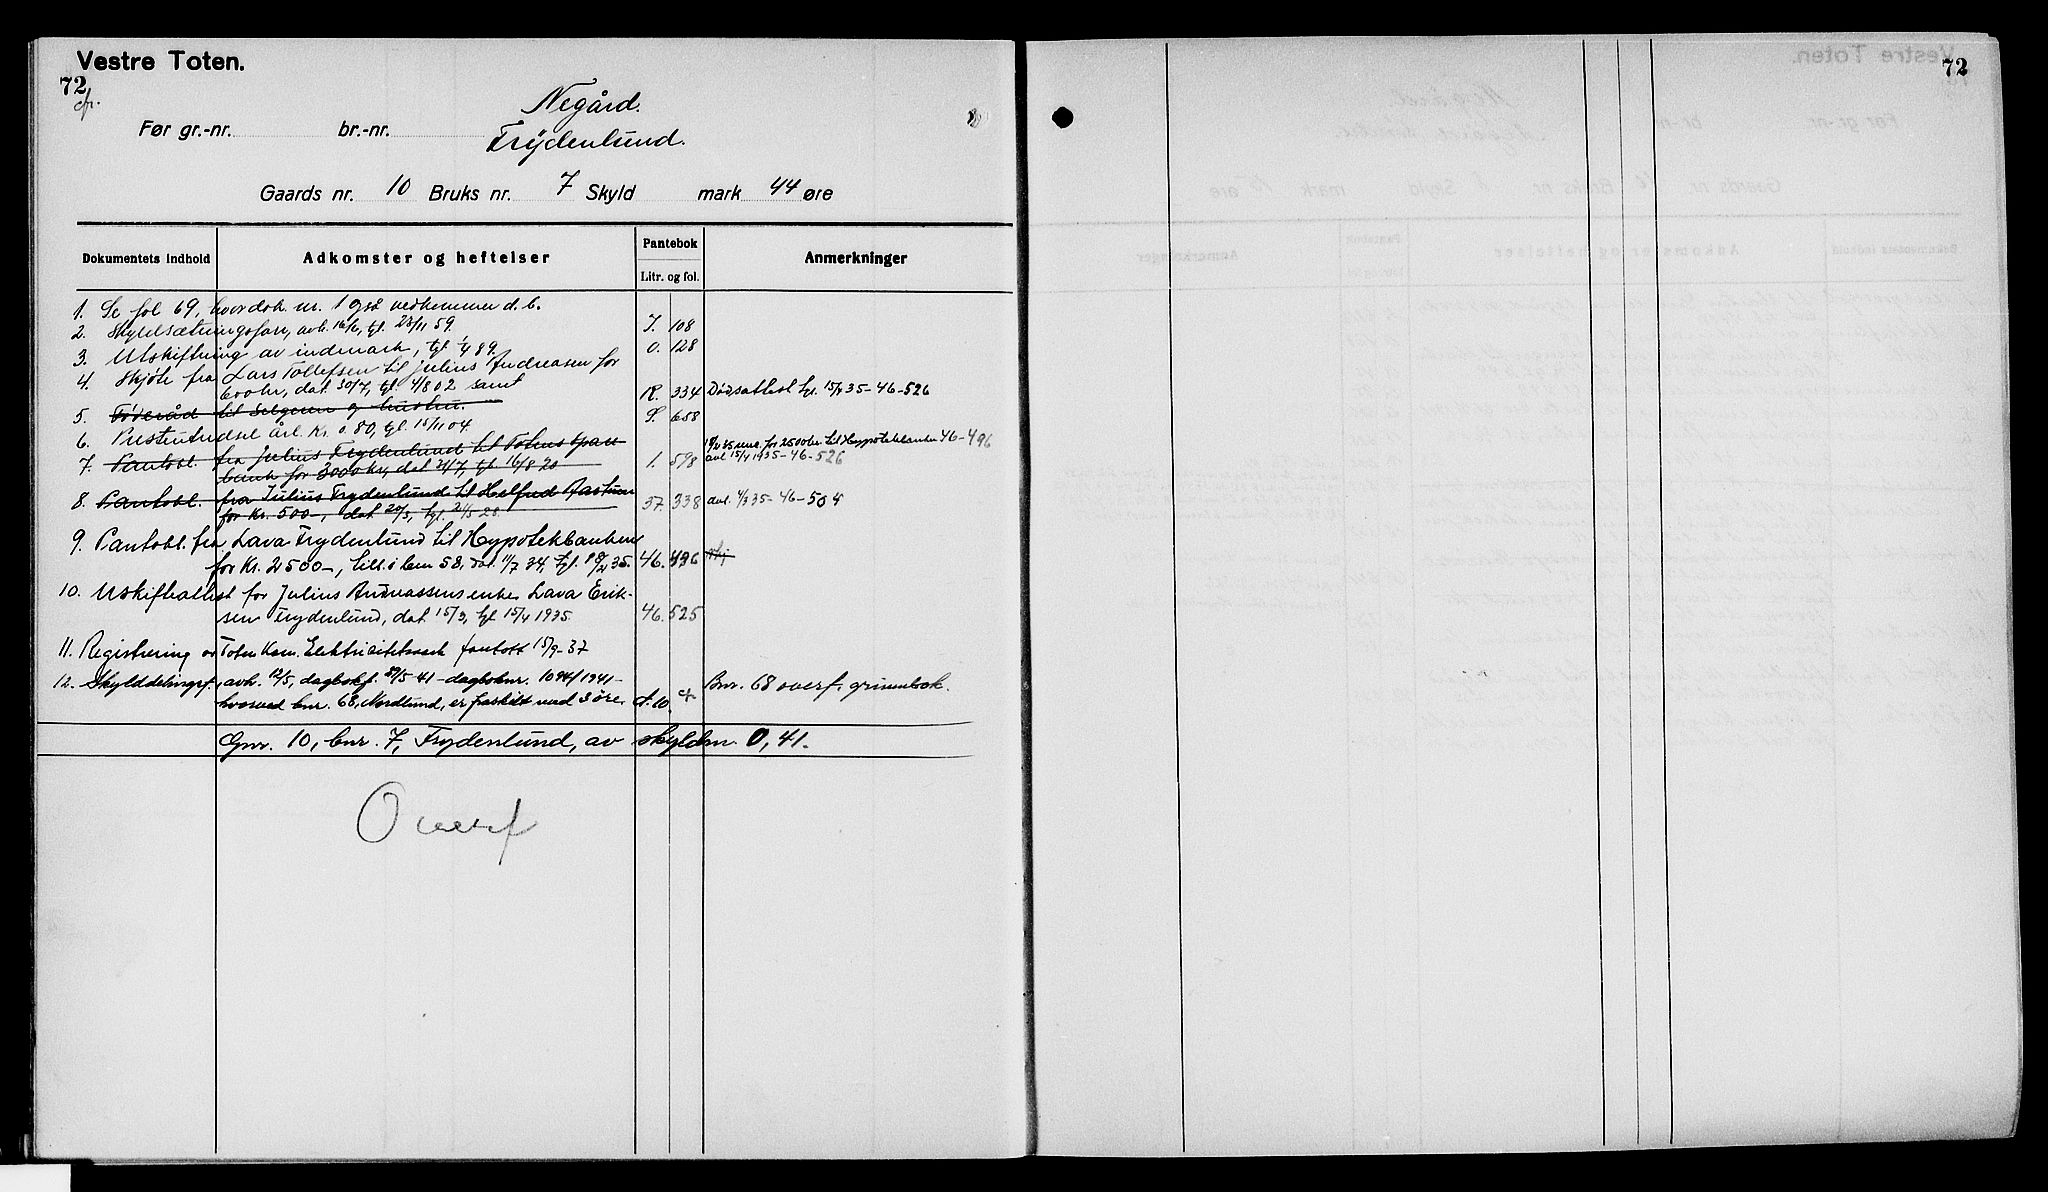 Vestre Toten.
72
cfr.
Negård.
Før gr.-nr. br.-nr.
Frydenlund.
Gaards nr. 10 Bruks nr. 7 Skyld mark 44 øre
Dokumentets indhold Adkomster og heftelser Pantebok Anmerkninger
Litr. og fol.
1. Se fol 69, hvor dok. nr. 1 også vedkommer d. b.
2. Skyldsætningsforr., avh. 16/6, tgl. 23/11 59. J. 108
3. Utskiftning av indmark, tgl. 89. O. 128
4. Skjøte fra Lars Tollefsen til Julius Andreasen for
600 kr., dat 30/7, tgl. 4/8 02 samt R. 334 Dødsattest tgl. 15/4 35-46-526
5. Føderåd til selgeren og hustru. S. 658
6. Prestenudsel årl. Kr. 0.80, tgl. 15/11 04.
7. Pantobl. fra Julius Frydenlund til Totens Spare-
bank for 3000 kr., dat 31/7, tgl. 16/8 20 1. 598 avl 15/4 1935-46-526
for 2500 kr til Hypotekbanken 46-496
8. Pantobl. fra Julius Frydenlund til Helfred Aastuen
for Kr. 500-, dat 20/3, tgl. 28. 37. 338 avl. 4/3 35-46-504
9. Pantobl. fra Lava Frydenlund til Hypotekbanken
for Kr. 2500-, till. i bnr 58, dat. 11/7 34, tgl. 18/2 35. 46. 496
10. Uskifteattest for Julius Andreassens enke Lava Erik-
sen Frydenlund, dat 15/3, tgl 15/4 1935. 46. 525
11. Registrering av Toten Kom. Elektrisitetsverk fortatt 15/9-37
12. Skylddelingsf., avh. 12/5, dagbokf. 29/5 41 - dagboknr. 1094/1941 - Bnr. 68 overf. grunnbok.
hvorved bnr. 68, Nordlund, er fraskilt med 3 øre. A. 10.
Gnr. 10, bnr. 7, Frydenlund, av skyldm. 0,41.
Overf
72